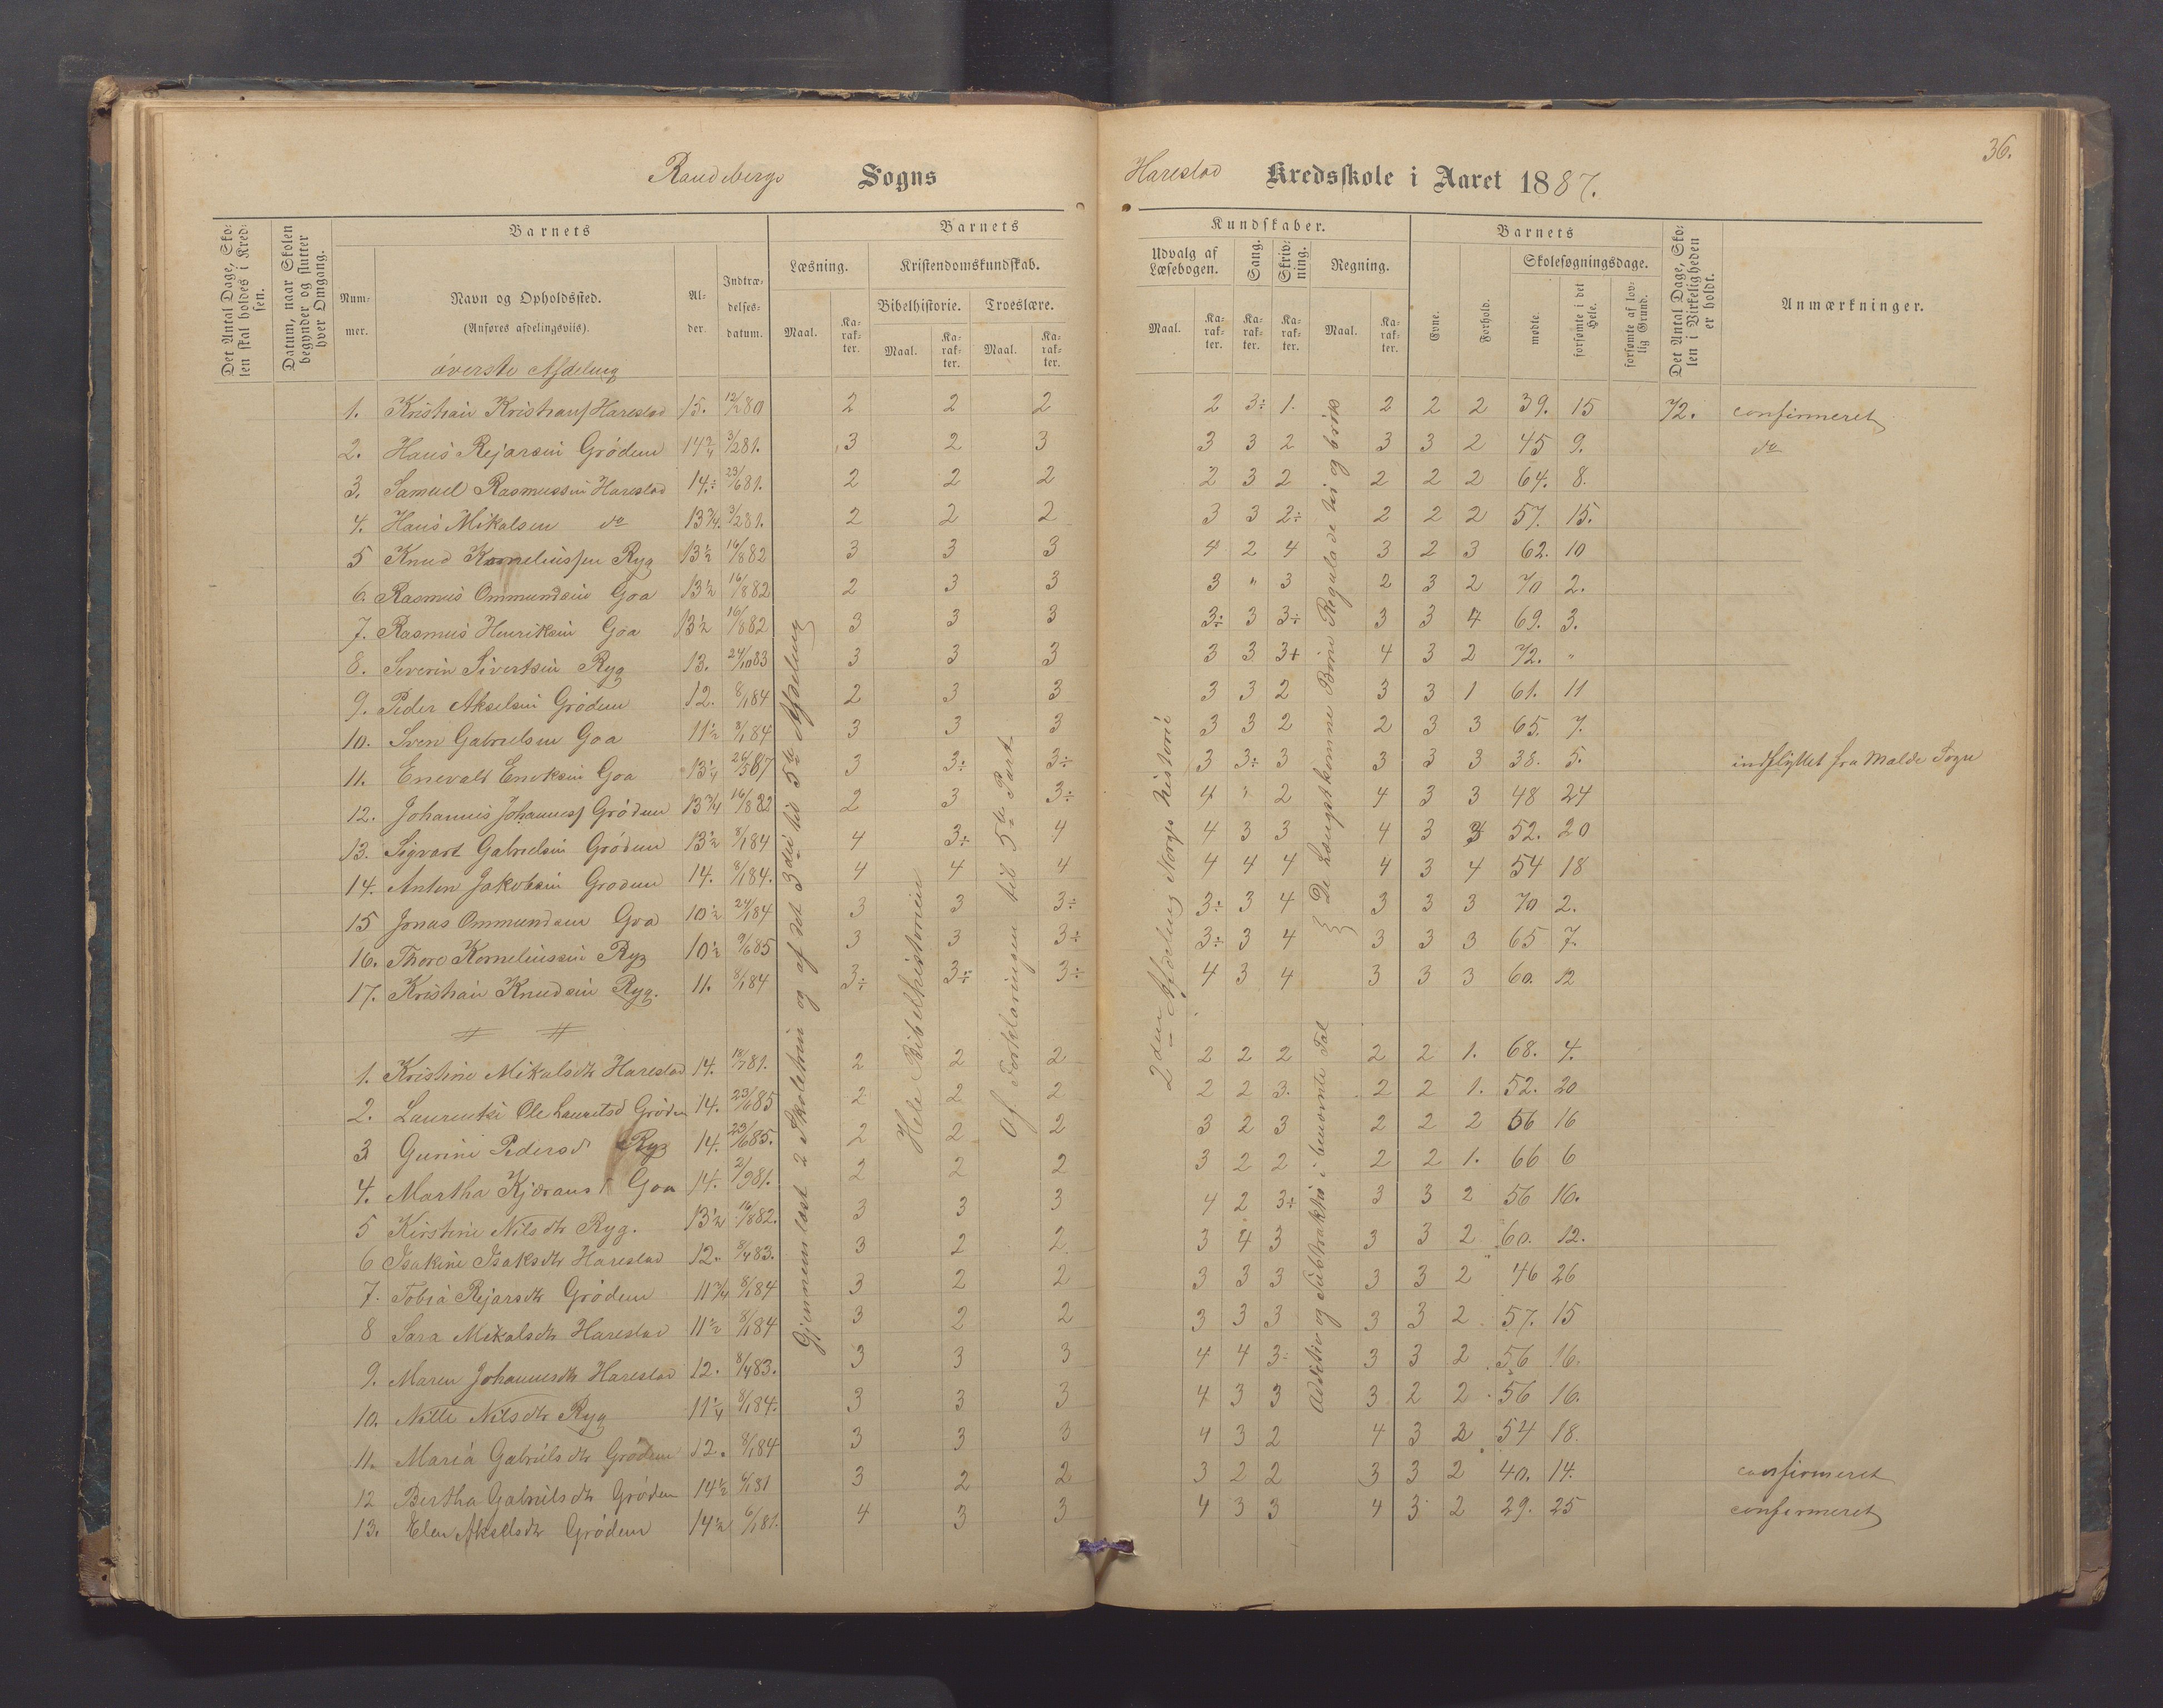 36.
Randebergs Sogns
Harestad Kredsskole i Aaret 1887.
Det Antal Dage, Skolen skal holdes i Kredsen.
Datum, naar Skolen begynder og slutter hver Omgang.
Barnets
Barnets
Kundskaber.
Barnets
Det Antal Dage, Skolen i Virkeligheden er holdt.
Anmærkninger.
Nummer.
Navn og Opholdssted.
(Anføres afdelingsviis).
Alder.
Indtrædelsesdatum.
Læsning.
Kristendomskundskab.
Udvalg af Læsebogen.
Sang.
Skrivning.
Regning.
Evne.
Forhold.
Skolesøgningsdage.
Maal. Karakter.
Bibelhistorie. Troeslære.
Maal. Karakter. Maal. Karakter.
Maal. Karakter. Karakter. Karakter. Maal. Karakter.
mødte. forsømte i det Hele. forsømte af lovlig Grund.
øverste Afdeling
1. Kristian Kristians Harestad 15. 12/280 2 2 2 2 3÷ 1. 2 2 2 39. 15 72. confirmeret
2. Hans Rejarsen Grødem 14 3/281. 3 2 3 3 3 2 3 3 2 45 9. do
3. Samuel Rasmussen Harestad 14.÷ 23/681. 2 2 2 2 3 2 2 2 2 64. 8.
4. Hans Mikalsen do 13 3/4. 3/281. 2 2 2 3 3 2÷ 2 2 2 57. 15.
5 Knud Korneliussen Ryg 13 1/2 16/882 3 3 3 4 2 4 3 2 3 62. 10
6. Rasmus Ommundsen Goa 13 1/2 16/882 2 3 3 3 " 3 2 3 2 70 2.
7. Rasmus Henriksen Goa 13 1/2 16/882 3 3 3 3÷ 3 3÷ 3 3 4 69. 3.
8. Severin Sivertsen Ryg 13. 24/1083 3 3 3 3 3 3+ 4 3 2 72. "
9. Peder Akselsen Grødem 12. 8/184 2 3 3 3 3 2 3 3 1 61. 11
10. Sven Gabrielsen Goa 11 1/2 8/184 3 3 3 3 3 2 2 3 3 65. 7.
11. Enevald Eriksen Goa 13 1/4 26/587 3 3÷ 3÷ 3 3÷ 3 3 3 3 38. 5. indflyttet fra Malde Sogn
12. Johannes Johanness Grødem 13 3/4 16/882 2 3 3÷ 4 " 2 4 3 3 48 24
13. Sigvart Gabrielsen Grødem 13 1/2 8/184 4 3÷ 4 4 3 3 4 3 52. 20
14. Anton Jakobsen Grødem 14. 8/184. 4 4 4 4 4 4 4 3 4 54 18
15 Jonas Ommundsen Goa 10 1/2 24/184 3 3 3÷ 3÷ 3 4 3 3 3 70 2.
16. Thore Korneliussen Ryg 10 1/2 9/685 3 3 3÷ 3÷ 3 4 3 3 3 65 7.
17. Kristian Knudsen Ryg. 11. 8/184 3÷ 3÷ 3÷ 4 3 4 3 3 3 60. 12
1. Kristine Mikalsdtr Harestad 14. 18/781. 2 2 2 2 2 2 2 2 1. 68. 4.
2. Laurentse Ole Lauritsd Grødem 14. 23/685 2 2 2 2 2 3. 2 2 1. 52. 20
3 Gurine Pedersd Ryg 14. 23/685. 2 2 2 3 2 3 2 2 2 56 16
4. Martha Kjørans Goa 14. 2/981. 2 2 2 3 2 2 2 2 1. 66 6
5 Kirstine Nilsdtr Ryg. 13 1/2 16/882. 3 3 3 4 2 3÷ 3 3 2 56 16.
6 Isakine Isaksdtr Harestad 12. 8/483. 3 2 2 3 4 3 3 3 2 60. 12.
7. Tobia Rejarsdtr Grødem 11 3/4 8/184 3 2 2 3 3 3 3 3 2 46 26
8 Sara Mikalsdtr Harestad 11 1/2 8/184 3 2 2 3 3 3 3 3 2 57. 15
9. Maren Johannesdtr Harestad 12. 8/483. 3 3 3 4 4 3÷ 3 3 2 56 16.
10. Nille Nilsdtr Ryg 11 1/4 8/184. 3 3 3 4 3 3 3 2 2 56 16.
11. Maria Gabrielsdtr Grødem 12. 8/184 3 3 3 4 3 2 4 3 2 54 18.
12 Bertha Gabrielsdtr Grødem 14 1/2 6/181 3 2 2 3 2 2 3 3 2 40. 14. confirmeret
13. Elen Akselsdtr Grødem 14 1/2 6/181. 4 3 3 4 3 3 4 3 2 29. 25 confirmeret
Gjennemlæst 2 Skoletrin og af det 3die til 5te Afdeling
Hele Bibelhistorien
Af Forklaringen til 5te Part
2den Afdeling Norges historie
De Længstkomne Børn Regulade tri og brøk
Addition og Subtraktion i benævnte Tal